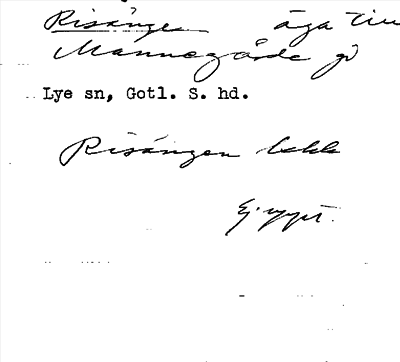 Risänge äga till
Mannegårde g
Lye sn, Gotl. S. hd.
Risängen bekk
Ej uppt.